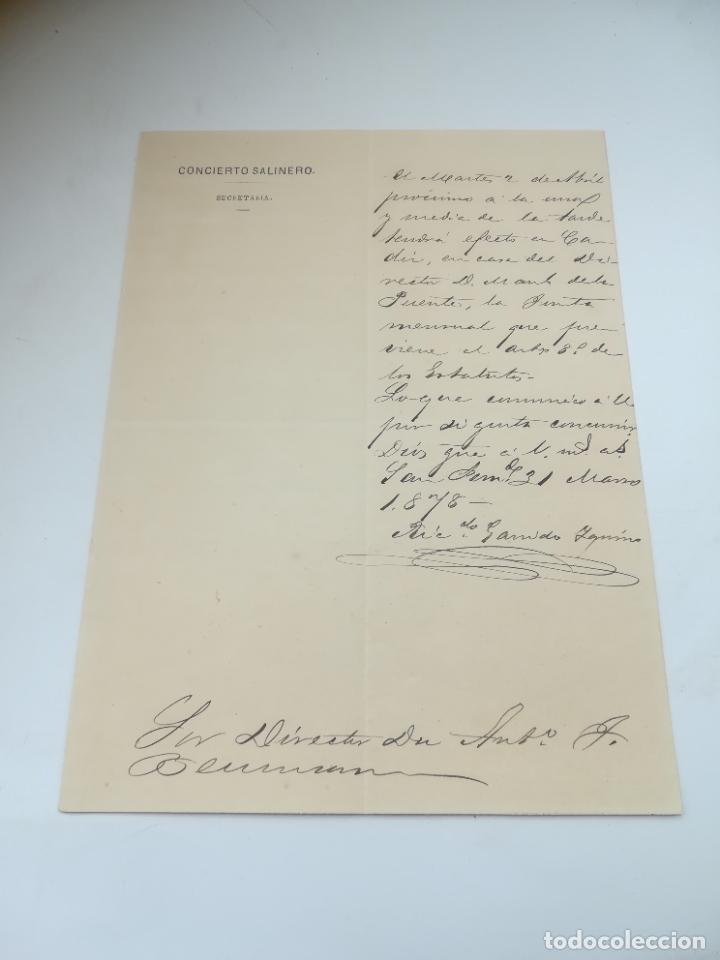 CONCIERTO SALINERO.
SECRETARIA.
El Martes 2 de Abril
próximo á la una
y media de la tarde
tendrá efecto en Cá-
diz, en casa del Di-
rector D. Man.l de la
Puente, la Junta
mensual que pre-
viene el arto 8.º de
los Estatutos.-
Lo que comunico á U.
por si gusta concurrir
Dios gue á V. m.s a.s
San Fern.do 31 Marzo
1.878-
Ric.do Garrido
Sor Director Dn Anto. F.
todocoleccion
todocoleccion.net